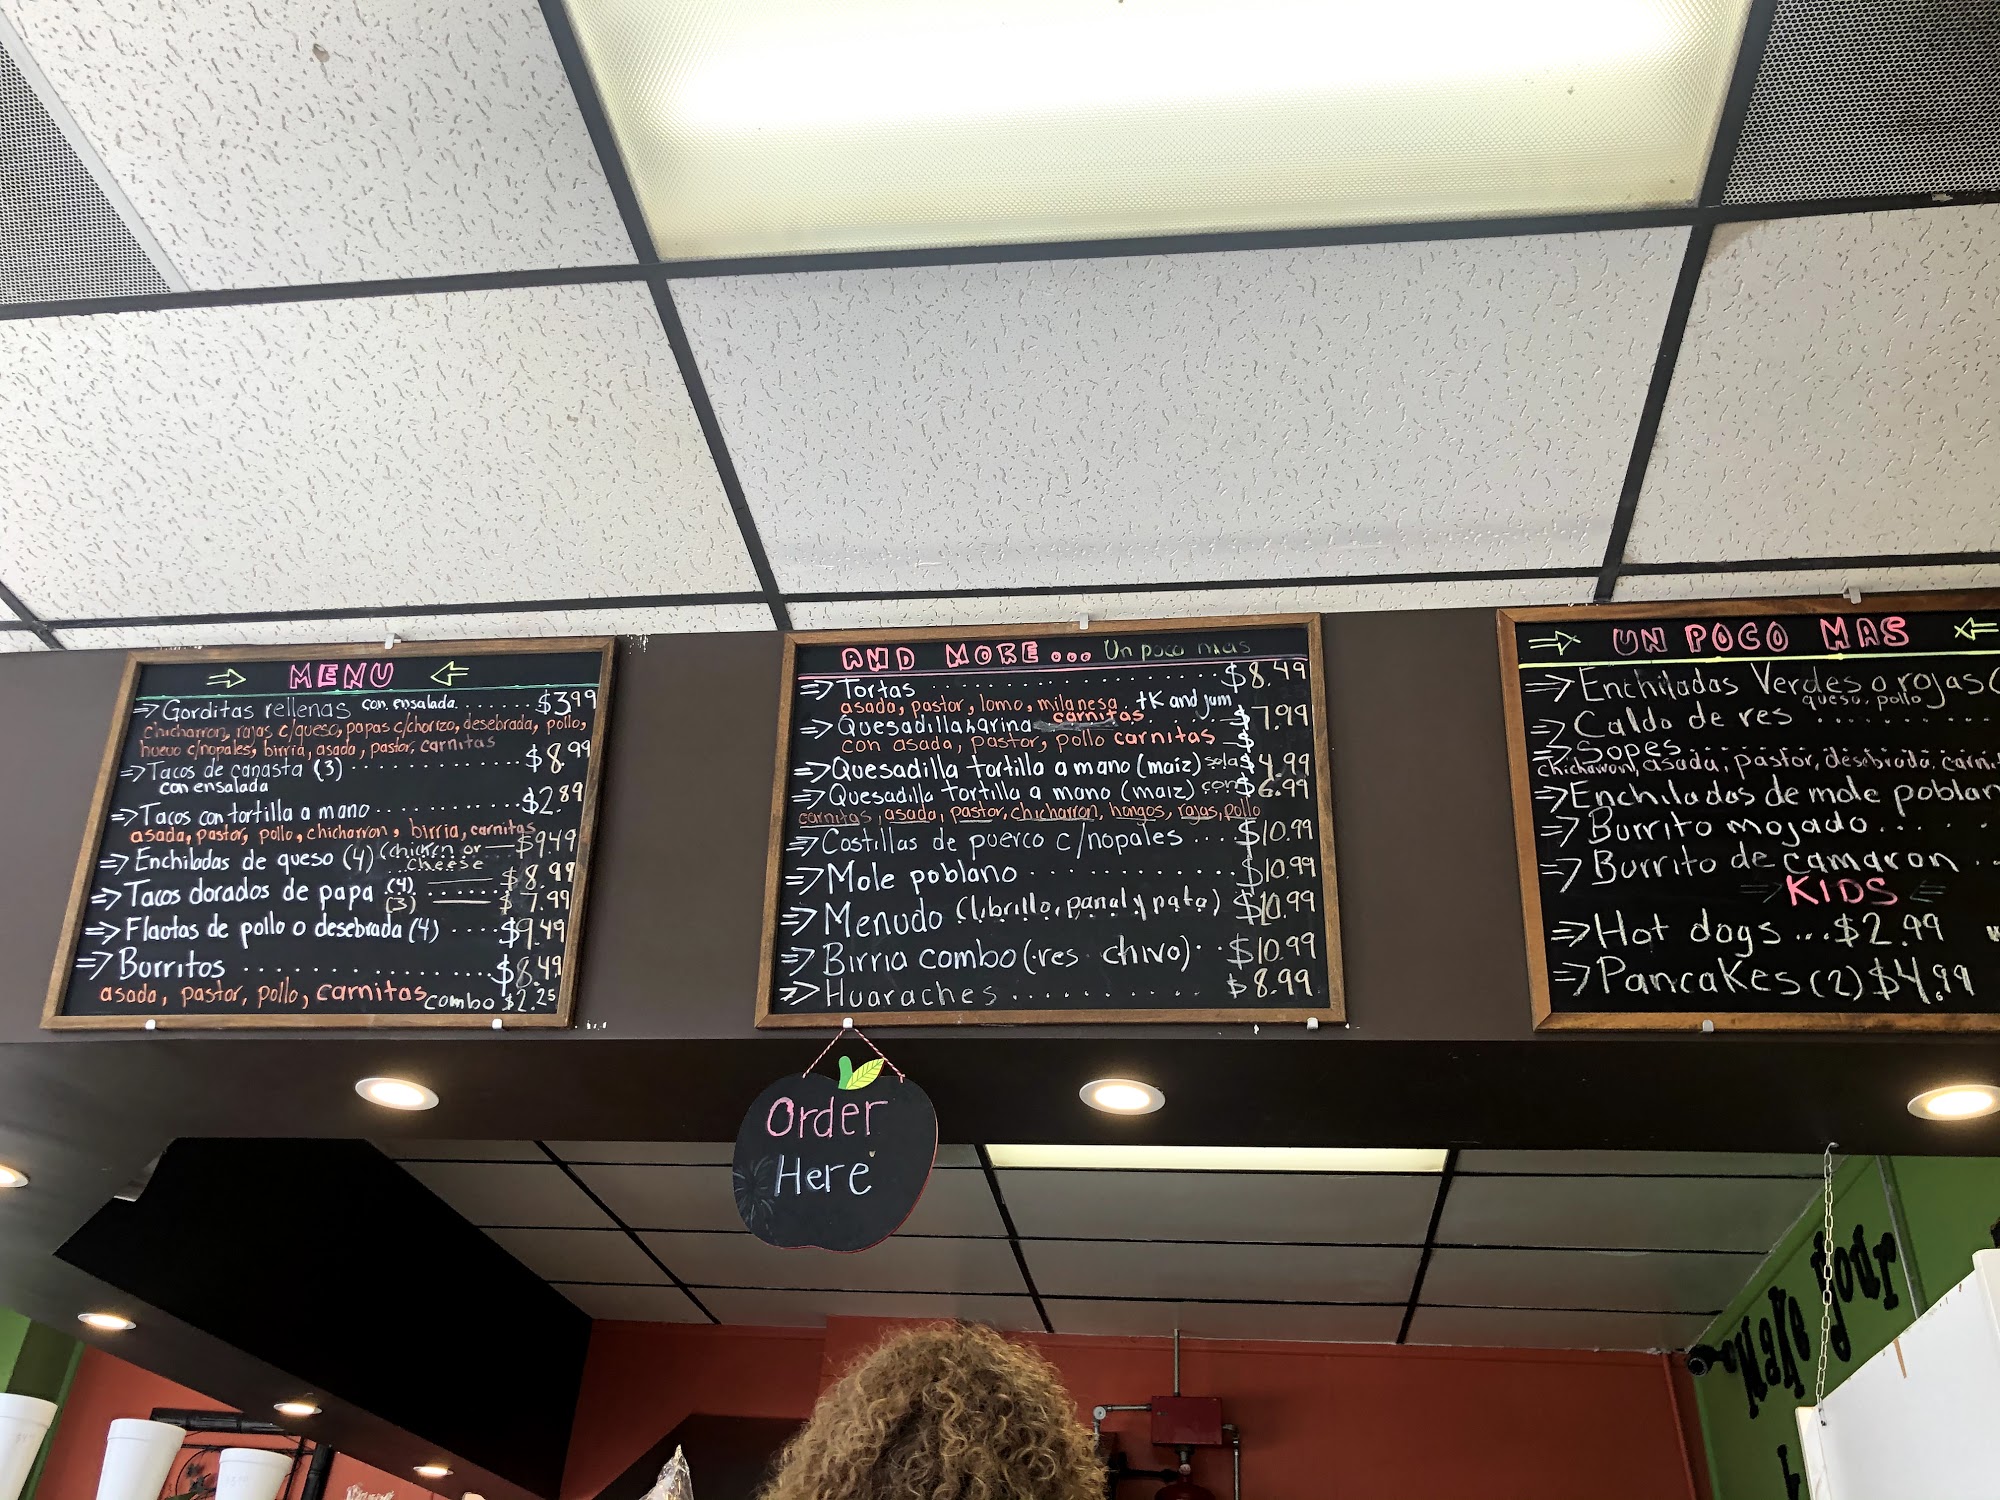 MENU
Gorditas rellenas con ensalada........$3.99
chicharron, rajas c/queso, papas c/chorizo, desebrada, pollo,
huevo c/nopales, birria, asada, pastor, carnitas
Tacos de canasta (3)...............$8.99
con ensalada
Tacos con tortilla a mano............$2.89
asada, pastor, pollo, chicharron, birria, carnitas
Enchiladas de queso (4) (chicken or — $9.49
cheese
Tacos dorados de papa (4) ...... $8.99
(3) —— $7.99
Flaotas de pollo o desebrada (4) ....$9.49
Burritos ...................$8.49
asada, pastor, pollo, carnitas combo $2.25
AND MORE... Un poco mas
Tortas ....................$8.49
asada, pastor, lomo, milanesa. tK and jum
Quesadilla harina carnitas ....$7.99
con asada, pastor, pollo carnitas $
Quesadilla tortilla a mano (maiz) sola $4.99
Quesadilla tortilla a mano (maiz) con $6.99
carnitas, asada, pastor, chicharron, hongos, rajas, pollo
Costillas de puerco c/nopales ...$10.99
Mole poblano ..............$10.99
Menudo (librillo, panal y pata) $10.99
Birria combo (res chivo)..$10.99
Huaraches ............ $8.99
UN POCO MAS
Enchiladas Verdes o rojas (
queso, pollo
Caldo de res .........
Sopes..........
chicharron, asada, pastor, desebrada, carni
Enchiladas de mole poblan
Burrito mojado....
Burrito de camaron ..
KIDS
Hot dogs ...$2.99
Pancakes (2) $4.99
Order
Here
Make your